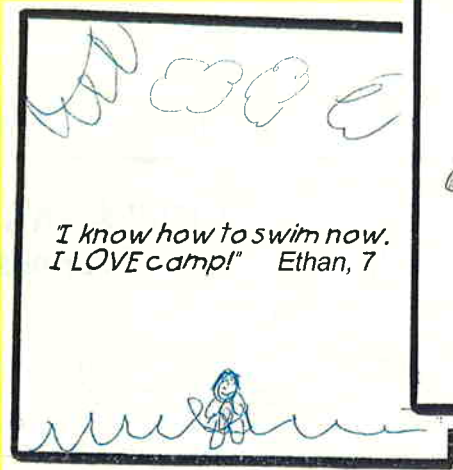 "I know how to swim now.
I LOVE camp!" Ethan, 7